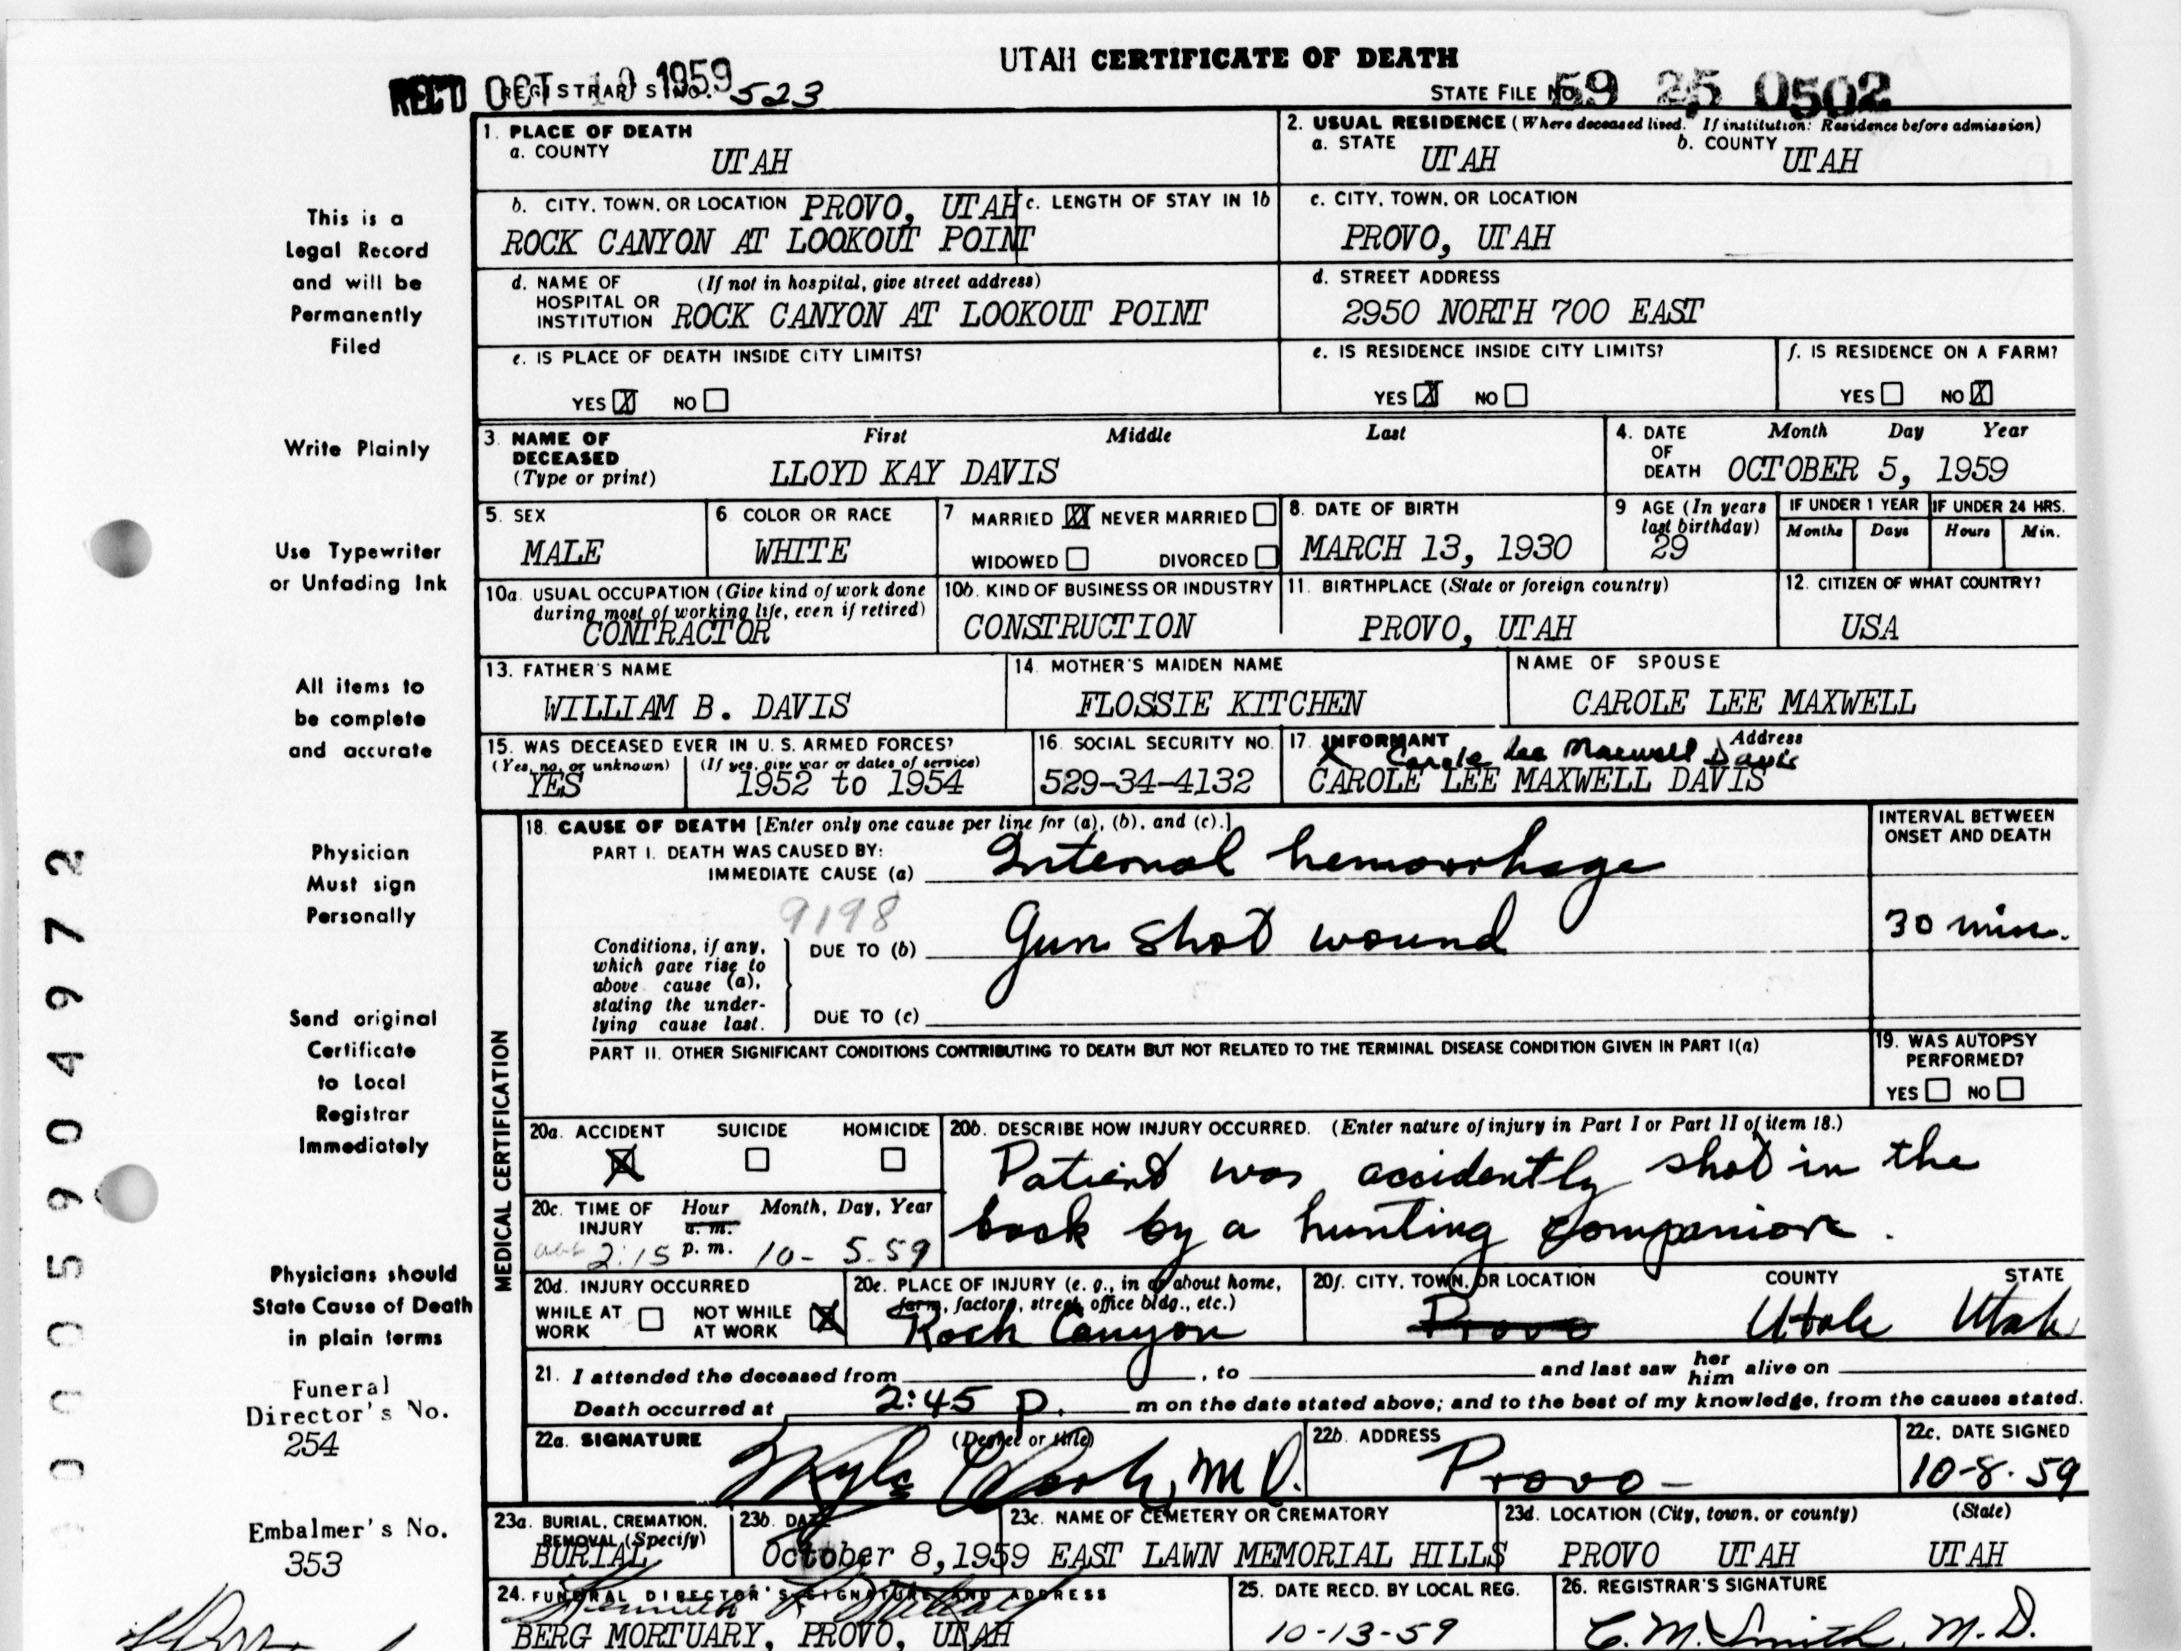 UTAH CERTIFICATE OF DEATH
REC'D OCT 1959 REGISTRAR'S NO. 523
STATE FILE NO. 59 25 0502
1. PLACE OF DEATH
a. COUNTY UTAH
2. USUAL RESIDENCE (Where deceased lived. If institution: Residence before admission)
a. STATE UTAH b. COUNTY UTAH
b. CITY, TOWN, OR LOCATION PROVO, UTAH
ROCK CANYON AT LOOKOUT POINT
c. LENGTH OF STAY IN 1b
c. CITY, TOWN, OR LOCATION
PROVO, UTAH
d. NAME OF HOSPITAL OR INSTITUTION (If not in hospital, give street address)
ROCK CANYON AT LOOKOUT POINT
d. STREET ADDRESS
2950 NORTH 700 EAST
e. IS PLACE OF DEATH INSIDE CITY LIMITS?
YES X NO
e. IS RESIDENCE INSIDE CITY LIMITS?
YES X NO
f. IS RESIDENCE ON A FARM?
YES NO X
3. NAME OF DECEASED (Type or print)
First Middle Last
LLOYD KAY DAVIS
4. DATE OF DEATH Month Day Year
OCTOBER 5, 1959
5. SEX
MALE
6. COLOR OR RACE
WHITE
7. MARRIED X NEVER MARRIED
WIDOWED DIVORCED
8. DATE OF BIRTH
MARCH 13, 1930
9. AGE (In years last birthday)
29
IF UNDER 1 YEAR
Months Days
IF UNDER 24 HRS.
Hours Min.
10a. USUAL OCCUPATION (Give kind of work done during most of working life, even if retired)
CONTRACTOR
10b. KIND OF BUSINESS OR INDUSTRY
CONSTRUCTION
11. BIRTHPLACE (State or foreign country)
PROVO, UTAH
12. CITIZEN OF WHAT COUNTRY?
USA
13. FATHER'S NAME
WILLIAM B. DAVIS
14. MOTHER'S MAIDEN NAME
FLOSSIE KITCHEN
NAME OF SPOUSE
CAROLE LEE MAXWELL
15. WAS DECEASED EVER IN U. S. ARMED FORCES?
(Yes, no, or unknown) (If yes, give war or dates of service)
YES 1952 to 1954
16. SOCIAL SECURITY NO.
529-34-4132
17. INFORMANT Address
X Carole Lee Maxwell Davis
CAROLE LEE MAXWELL DAVIS
MEDICAL CERTIFICATION
18. CAUSE OF DEATH [Enter only one cause per line for (a), (b), and (c).]
INTERVAL BETWEEN ONSET AND DEATH
PART I. DEATH WAS CAUSED BY:
IMMEDIATE CAUSE (a) Internal hemorrhage
9198
Conditions, if any, which gave rise to above cause (a), stating the underlying cause last.
DUE TO (b) Gun shot wound
30 min.
DUE TO (c)
PART II. OTHER SIGNIFICANT CONDITIONS CONTRIBUTING TO DEATH BUT NOT RELATED TO THE TERMINAL DISEASE CONDITION GIVEN IN PART I(a)
19. WAS AUTOPSY PERFORMED?
YES NO
20a. ACCIDENT SUICIDE HOMICIDE
X
20b. DESCRIBE HOW INJURY OCCURRED. (Enter nature of injury in Part I or Part II of item 18.)
Patient was accidently shot in the
back by a hunting companion.
20c. TIME OF INJURY Hour Month, Day, Year
a. m.
abt 2:15 p. m. 10-5-59
20d. INJURY OCCURRED
WHILE AT WORK NOT WHILE AT WORK X
20e. PLACE OF INJURY (e. g., in or about home, farm, factory, street, office bldg., etc.)
Rock Canyon
20f. CITY, TOWN, OR LOCATION COUNTY STATE
Provo Utah Utah
21. I attended the deceased from , to and last saw her him alive on
Death occurred at 2:45 P. m on the date stated above; and to the best of my knowledge, from the causes stated.
22a. SIGNATURE (Degree or title)
M.D.
22b. ADDRESS
Provo-
22c. DATE SIGNED
10-8-59
23a. BURIAL, CREMATION, REMOVAL (Specify)
BURIAL
23b. DATE
October 8, 1959
23c. NAME OF CEMETERY OR CREMATORY
EAST LAWN MEMORIAL HILLS
23d. LOCATION (City, town, or county) (State)
PROVO UTAH UTAH
24. FUNERAL DIRECTOR'S SIGNATURE AND ADDRESS
BERG MORTUARY, PROVO, UTAH
25. DATE RECD. BY LOCAL REG.
10-13-59
26. REGISTRAR'S SIGNATURE
C. M. Smith, M.D.
This is a
Legal Record
and will be
Permanently
Filed
Write Plainly
Use Typewriter
or Unfading Ink
All items to
be complete
and accurate
Physician
Must sign
Personally
Send original
Certificate
to Local
Registrar
Immediately
Physicians should
State Cause of Death
in plain terms
Funeral
Director's No.
254
Embalmer's No.
353
0005904972